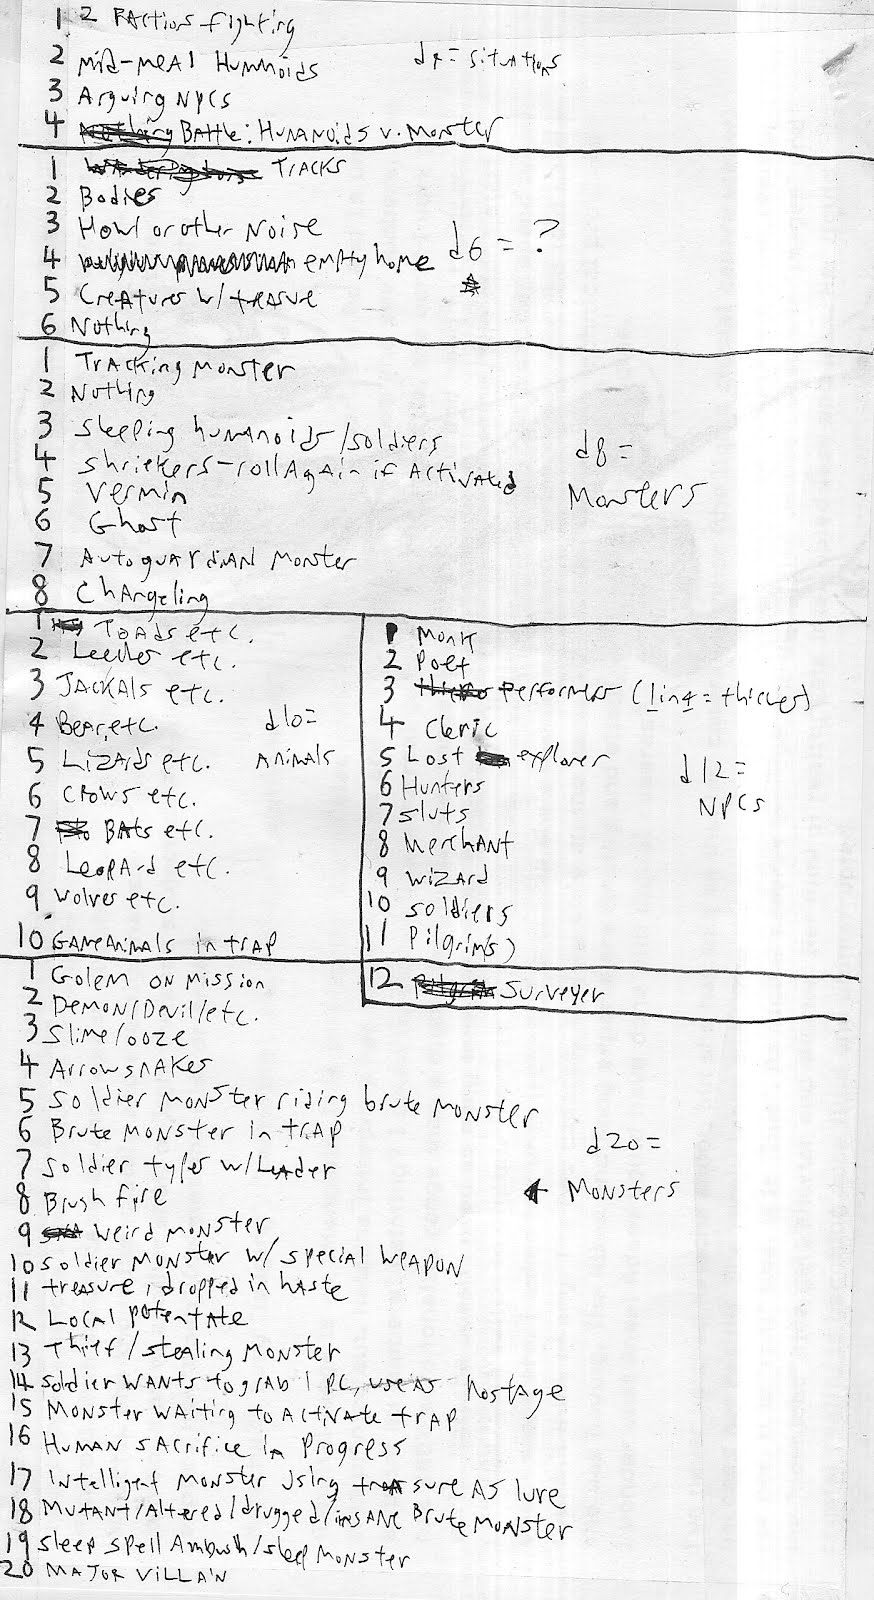 1 2 Factions fighting
2 mid-meal Humanoids
d4 = situations
3 Arguing NPCs
4 Nothing Battle: Humanoids v. Monster
1 TRACKS
2 Bodies
3 Howl or other Noise
d6 = ?
4 empty home
5 Creatures w/ treasure
6 Nothing
1 Tracking monster
2 Nothing
3 Sleeping humanoids/soldiers
d8 =
4 Shriekers-roll Again if Activated
Monsters
5 Vermin
6 Ghost
7 Autoguardian Monster
8 Changeling
1 Toads etc.
2 Leeches etc.
3 JACKALS etc.
4 Bear, etc.
d10=
5 Lizards etc.
Animals
6 Crows etc.
7 BAts etc.
8 Leopard etc.
9 Wolves etc.
10 GAme Animals in trap
1 Monk
2 Poet
3 thieves Performers (1 in 4 = thieves)
4 Cleric
5 Lost explorer
d12=
6 Hunters
NPCs
7 sluts
8 Merchant
9 wizard
10 soldiers
11 Pilgrim(s)
12 Pilgrim Surveyer
1 Golem on mission
2 Demon/Devil/etc.
3 Slime/ooze
4 Arrowsnakes
5 Soldier Monster riding brute monster
6 Brute Monster in trap
d20=
7 Soldier types w/ Leader
Monsters
8 Brush fire
9 weird monster
10 Soldier Monster w/ special weapon
11 treasure, dropped in haste
12 Local potentate
13 Thief/stealing Monster
14 Soldier WANts to grAb 1 PC, use as hostage
15 Monster waiting to Activate trap
16 Human sacrifice in Progress
17 Intelligent monster using treasure as lure
18 Mutant/Altered/drugged/insane Brute Monster
19 sleep spell Ambush/sleep monster
20 MAJOR VILLAIN